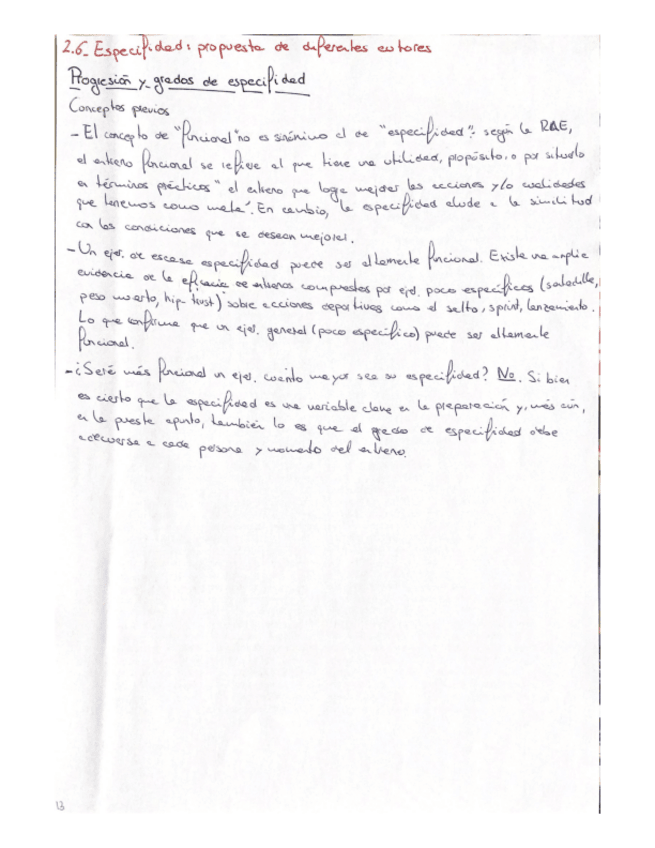 2.6_ Especifidad: propuesta de diferentes autores
Progresión y grados de especifidad
Conceptos previos
- El concepto de "funcional" no es sinónimo al de "especifidad": según la RAE,
el entreno funcional se refiere al que tiene una utilidad, propósito, o por situarlo
en términos prácticos "el entreno que logra mejorar las acciones y/o cualidades
que tenemos como meta". En cambio, la especifidad alude a la similitud
con las condiciones que se desean mejorar.
- Un ejer. de escasa especifidad puede ser altamente funcional. Existe una amplia
evidencia de la eficacia de entrenos compuestos por ejer. poco específicos (sentadilla,
peso muerto, hip-trust) sobre acciones deportivas como el salto, sprint, lanzamiento.
Lo que confirma que un ejer. general (poco específico) puede ser altamente
funcional.
- ¿Será más funcional un ejer. cuanto mayor sea su especifidad? No. Si bien
es cierto que la especifidad es una variable clave en la preparación y, más aún,
en la puesta a punto, también lo es que el grado de especifidad debe
adecuarse a cada persona y momento del entreno.
13